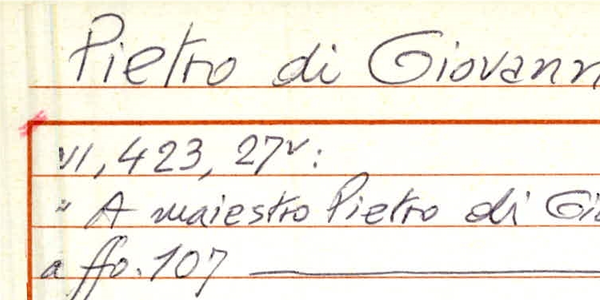 Pietro di Giovann
VI, 423, 27v:
" A maiestro Pietro di Gio
a ffo. 107